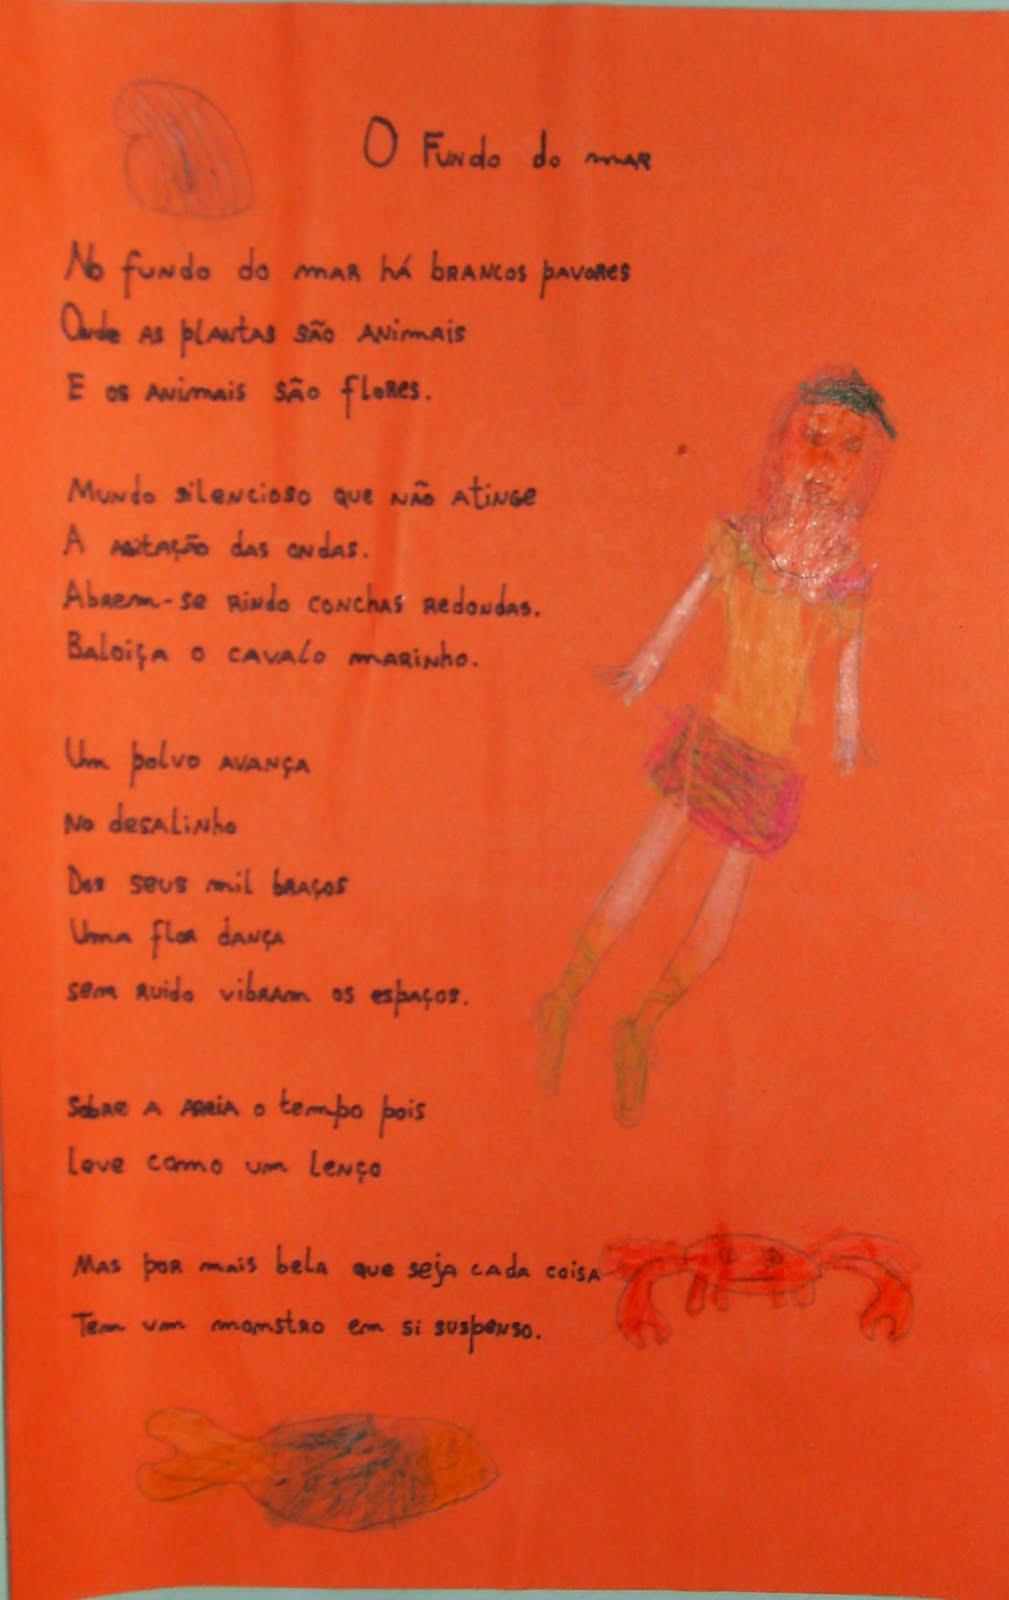 O Fundo do mar
No fundo do mar há brancos pavores
Onde as plantas são animais
E os animais são flores.
Mundo silencioso que não atinge
A agitação das ondas.
Abrem-se rindo conchas redondas.
Baloiça o cavalo marinho.
Um polvo avança
No desalinho
Dos seus mil braços
Uma flor dança
sem ruido vibram os espaços.
Sobre a areia o tempo pois
leve como um lenço
Mas por mais bela que seja cada coisa
Tem um monstro em si suspenso.